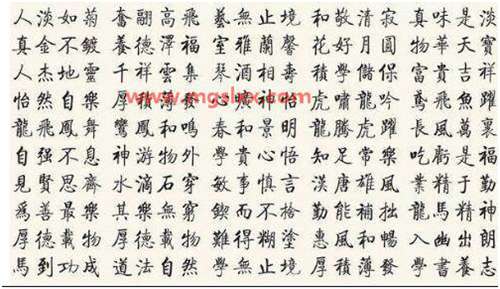 人淡如菊 奮翮高飛 藝無止境 和敬清寂 真味是淡
真金不鍍 養德澤福 室雅蘭馨 花好月圓 物華天寶
人杰地靈 千祥雲集 琴酒相壽 積學儲保 富貴吉祥
www.mgslxx.com
怡然自樂 厚 心 神怡 虎嘯龍吟 鳶飛魚躍
龍飛鳳舞 鸞鳳和鳴 春和景明 龍騰虎躍 長風萬裏
自强不息 神游物外 學貴心悟 知足常樂 吃虧是福
見賢思齊 水滴石穿 敏事慎言 漢唐雄風 業精于勤
爲善最樂 其樂無窮 鍥而不捨 勤能補拙 龍馬精神
厚德載物 厚德載物 難得糊塗 惠風和暢 入幽出朗
馬到功成 道法自然 學無止境 厚積薄發 學書養志